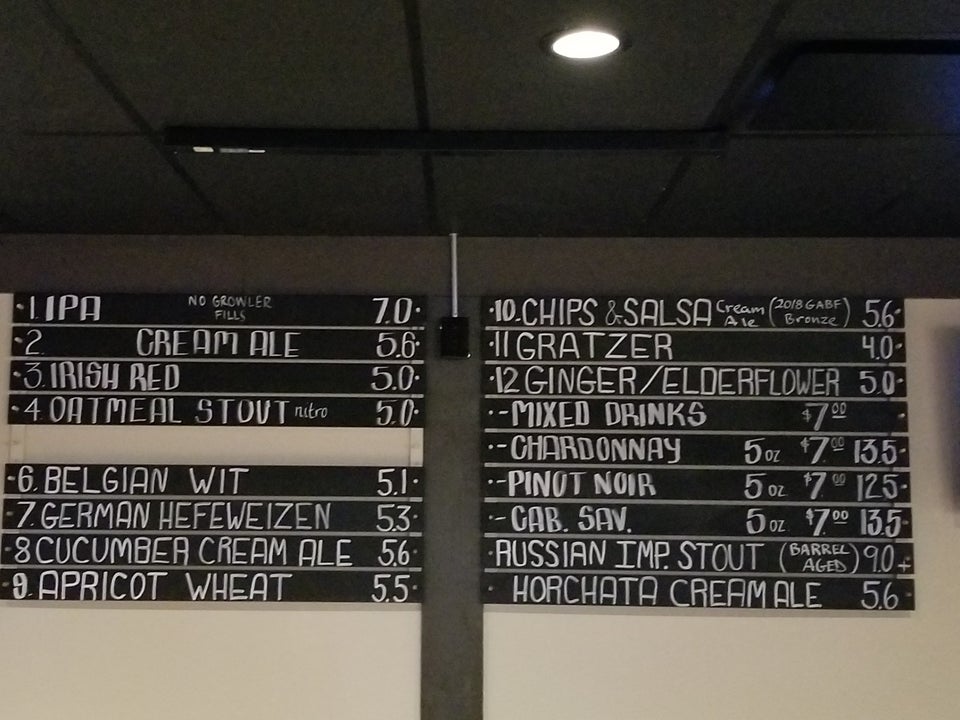 1. IPA NO GROWLER FILLS 7.0
2. CREAM ALE 5.6
3. IRISH RED 5.0
4. OATMEAL STOUT nitro 5.0
6. BELGIAN WIT 5.1
7. GERMAN HEFEWEIZEN 5.3
8 CUCUMBER CREAM ALE 5.6
9. APRICOT WHEAT 5.5
10. CHIPS & SALSA Cream Ale (2018 GABF Bronze) 5.6
11 GRATZER 4.0
12 GINGER/ELDERFLOWER 5.0
- MIXED DRINKS $7.00
- CHARDONNAY 5 oz $7.00 13.5
- PINOT NOIR 5 oz $7.00 12.5
- CAB. SAV. 5 oz $7.00 13.5
RUSSIAN IMP. STOUT (BARREL AGED) 9.0+
HORCHATA CREAM ALE 5.6